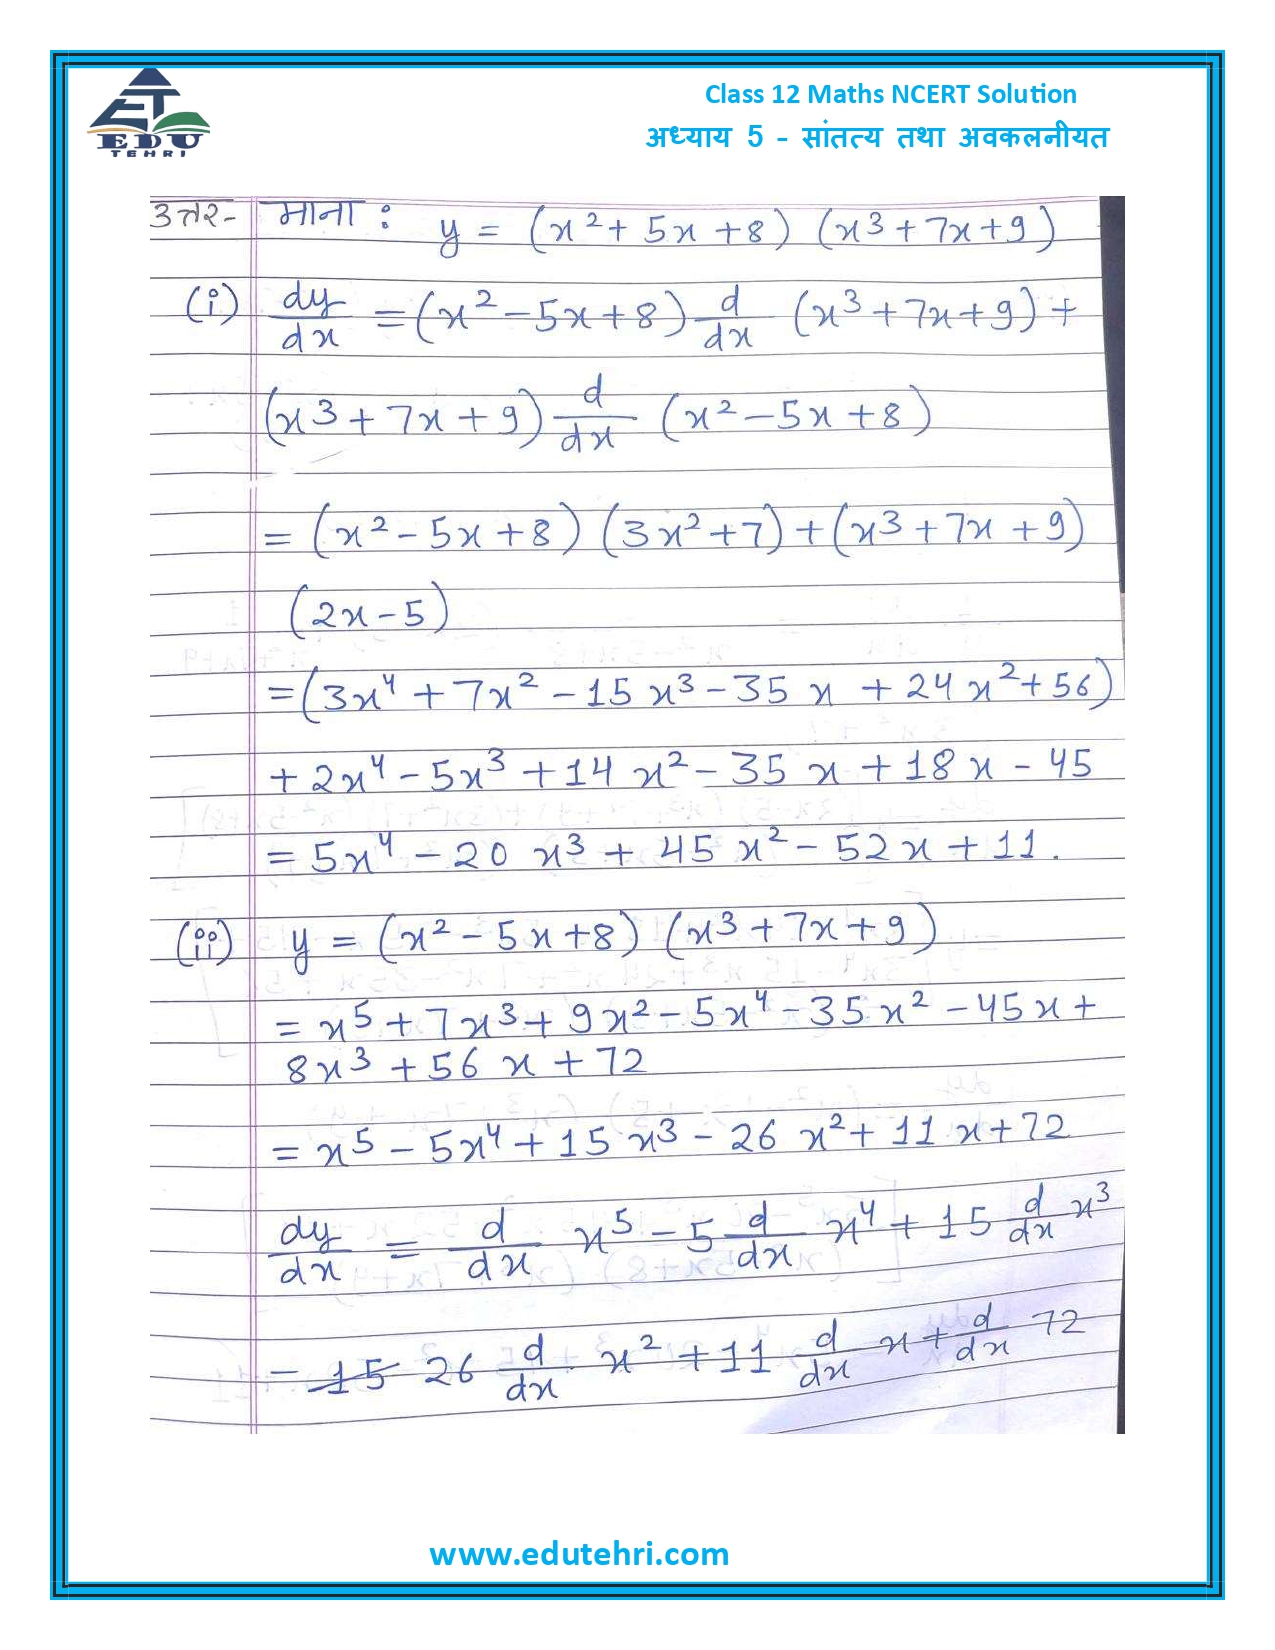 Class 12 Maths NCERT Solution
अध्याय 5 - सांतत्य तथा अवकलनीयत
EDU
TEHRI
उत्तर- माना : y = (x² + 5x + 8) (x³ + 7x + 9)
(i) dy/dx = (x² - 5x + 8) d/dx (x³ + 7x + 9) +
(x³ + 7x + 9) d/dx (x² - 5x + 8)
= (x² - 5x + 8) (3x² + 7) + (x³ + 7x + 9)
(2x - 5)
= (3x⁴ + 7x² - 15x³ - 35x + 24x² + 56)
+ 2x⁴ - 5x³ + 14x² - 35x + 18x - 45
= 5x⁴ - 20x³ + 45x² - 52x + 11.
(ii) y = (x² - 5x + 8) (x³ + 7x + 9)
= x⁵ + 7x³ + 9x² - 5x⁴ - 35x² - 45x +
8x³ + 56x + 72
= x⁵ - 5x⁴ + 15x³ - 26x² + 11x + 72
dy/dx = d/dx x⁵ - 5 d/dx x⁴ + 15 d/dx x³
- 15 26 d/dx x² + 11 d/dx x + d/dx 72
www.edutehri.com